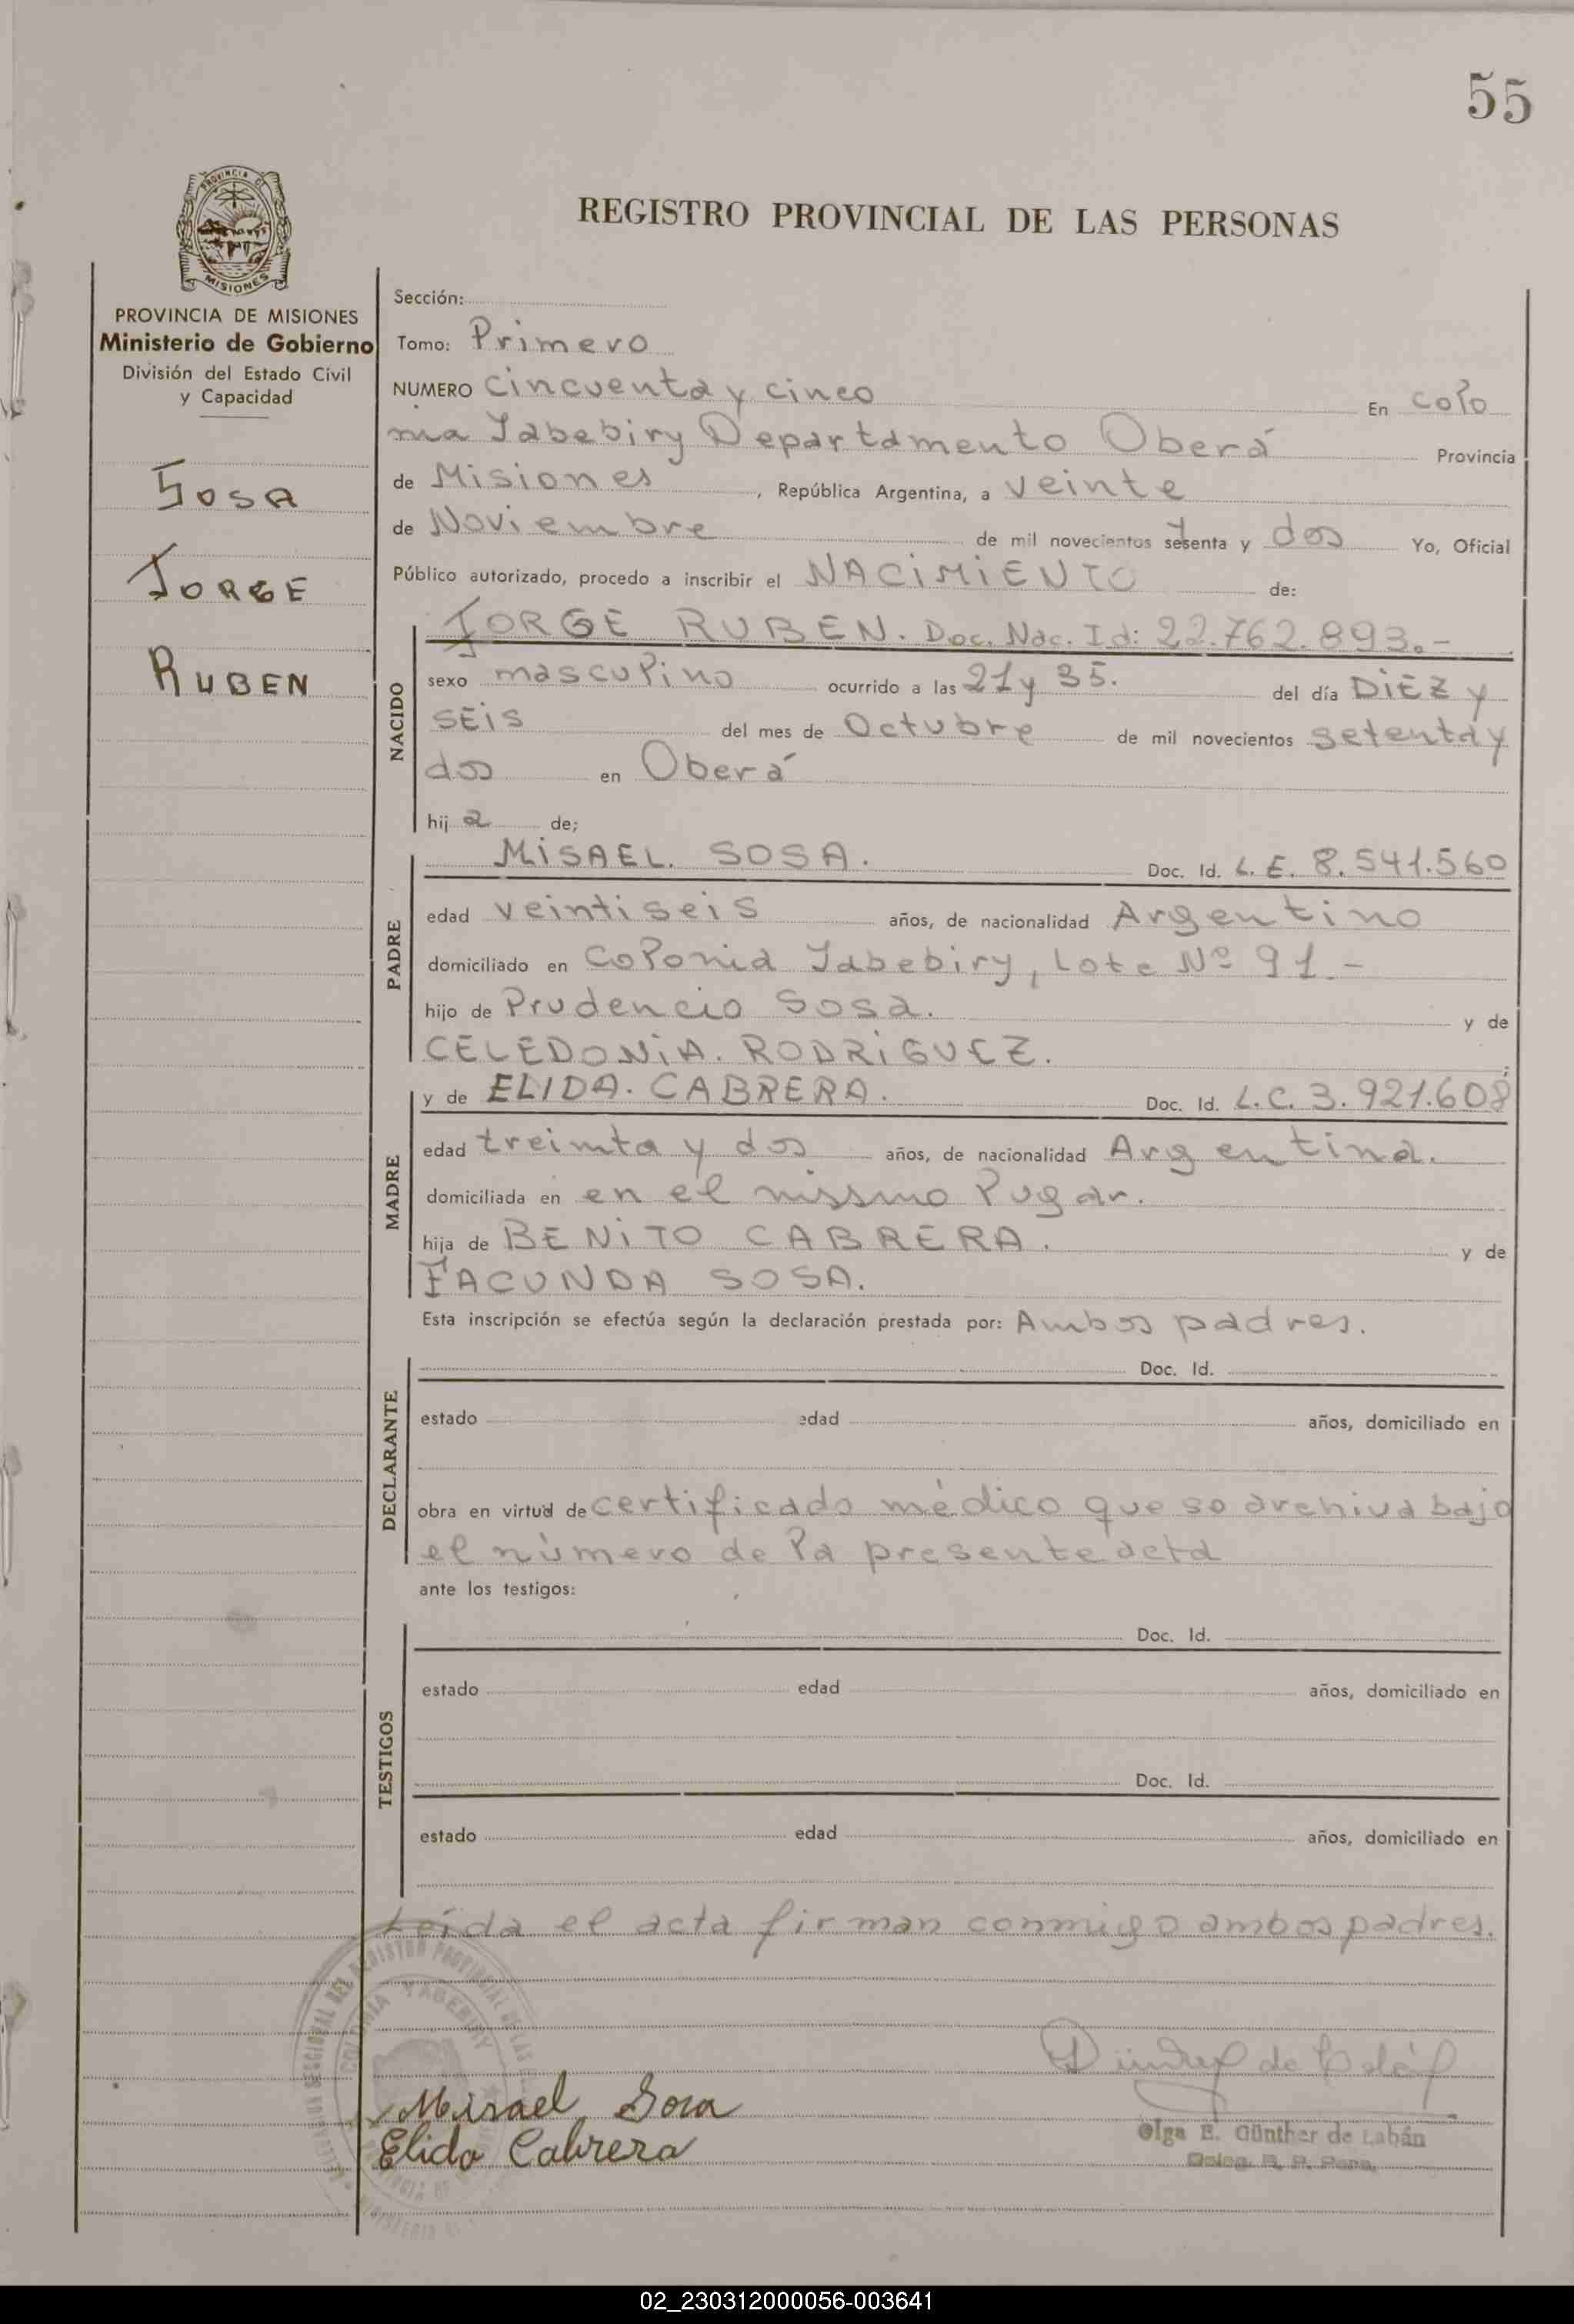 55
PROVINCIA DE
MISIONES
REGISTRO PROVINCIAL DE LAS PERSONAS
PROVINCIA DE MISIONES
Ministerio de Gobierno
División del Estado Civil
y Capacidad
SOSA
JORGE
RUBEN
Sección:
Tomo: Primero
NUMERO cincuenta y cinco En colo
nia Yabebiry Departamento Oberá Provincia
de Misiones, República Argentina, a veinte
de Noviembre de mil novecientos setenta y dos Yo, Oficial
Público autorizado, procedo a inscribir el NACIMIENTO de:
NACIDO
JORGE RUBEN. Doc. Nac. Id: 22.762.893.-
sexo masculino ocurrido a las 21 y 35. del día DIEZ y
SEIS del mes de Octubre de mil novecientos setenta y
dos en Oberá
hij o de;
PADRE
MISAEL. SOSA. Doc. Id. L.E. 8.541.560
edad veintiseis años, de nacionalidad Argentino
domiciliado en Colonia Yabebiry, Lote Nº 91.-
hijo de Prudencio Sosa. y de
CELEDONIA. RODRIGUEZ.
MADRE
y de ELIDA. CABRERA. Doc. Id. L.C. 3.921.608
edad treinta y dos años, de nacionalidad Argentina.
domiciliada en en el mismo lugar.
hija de BENITO CABRERA. y de
FACUNDA SOSA.
Esta inscripción se efectúa según la declaración prestada por: Ambos padres.
DECLARANTE
Doc. Id.
estado edad años, domiciliado en
obra en virtud de certificado médico que se archiva bajo
el número de la presente acta
ante los testigos:
TESTIGOS
Doc. Id.
estado edad años, domiciliado en
Doc. Id.
estado edad años, domiciliado en
Leída el acta firman conmigo ambos padres.
COLONIA YABEBIRY
Misael Sosa
Elida Cabrera
Olga E. Günther de Labán
Deleg. R. P. Pers.
02_230312000056-003641